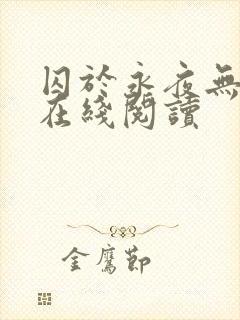 囚於永夜無
在綫閱讀
金鷹節